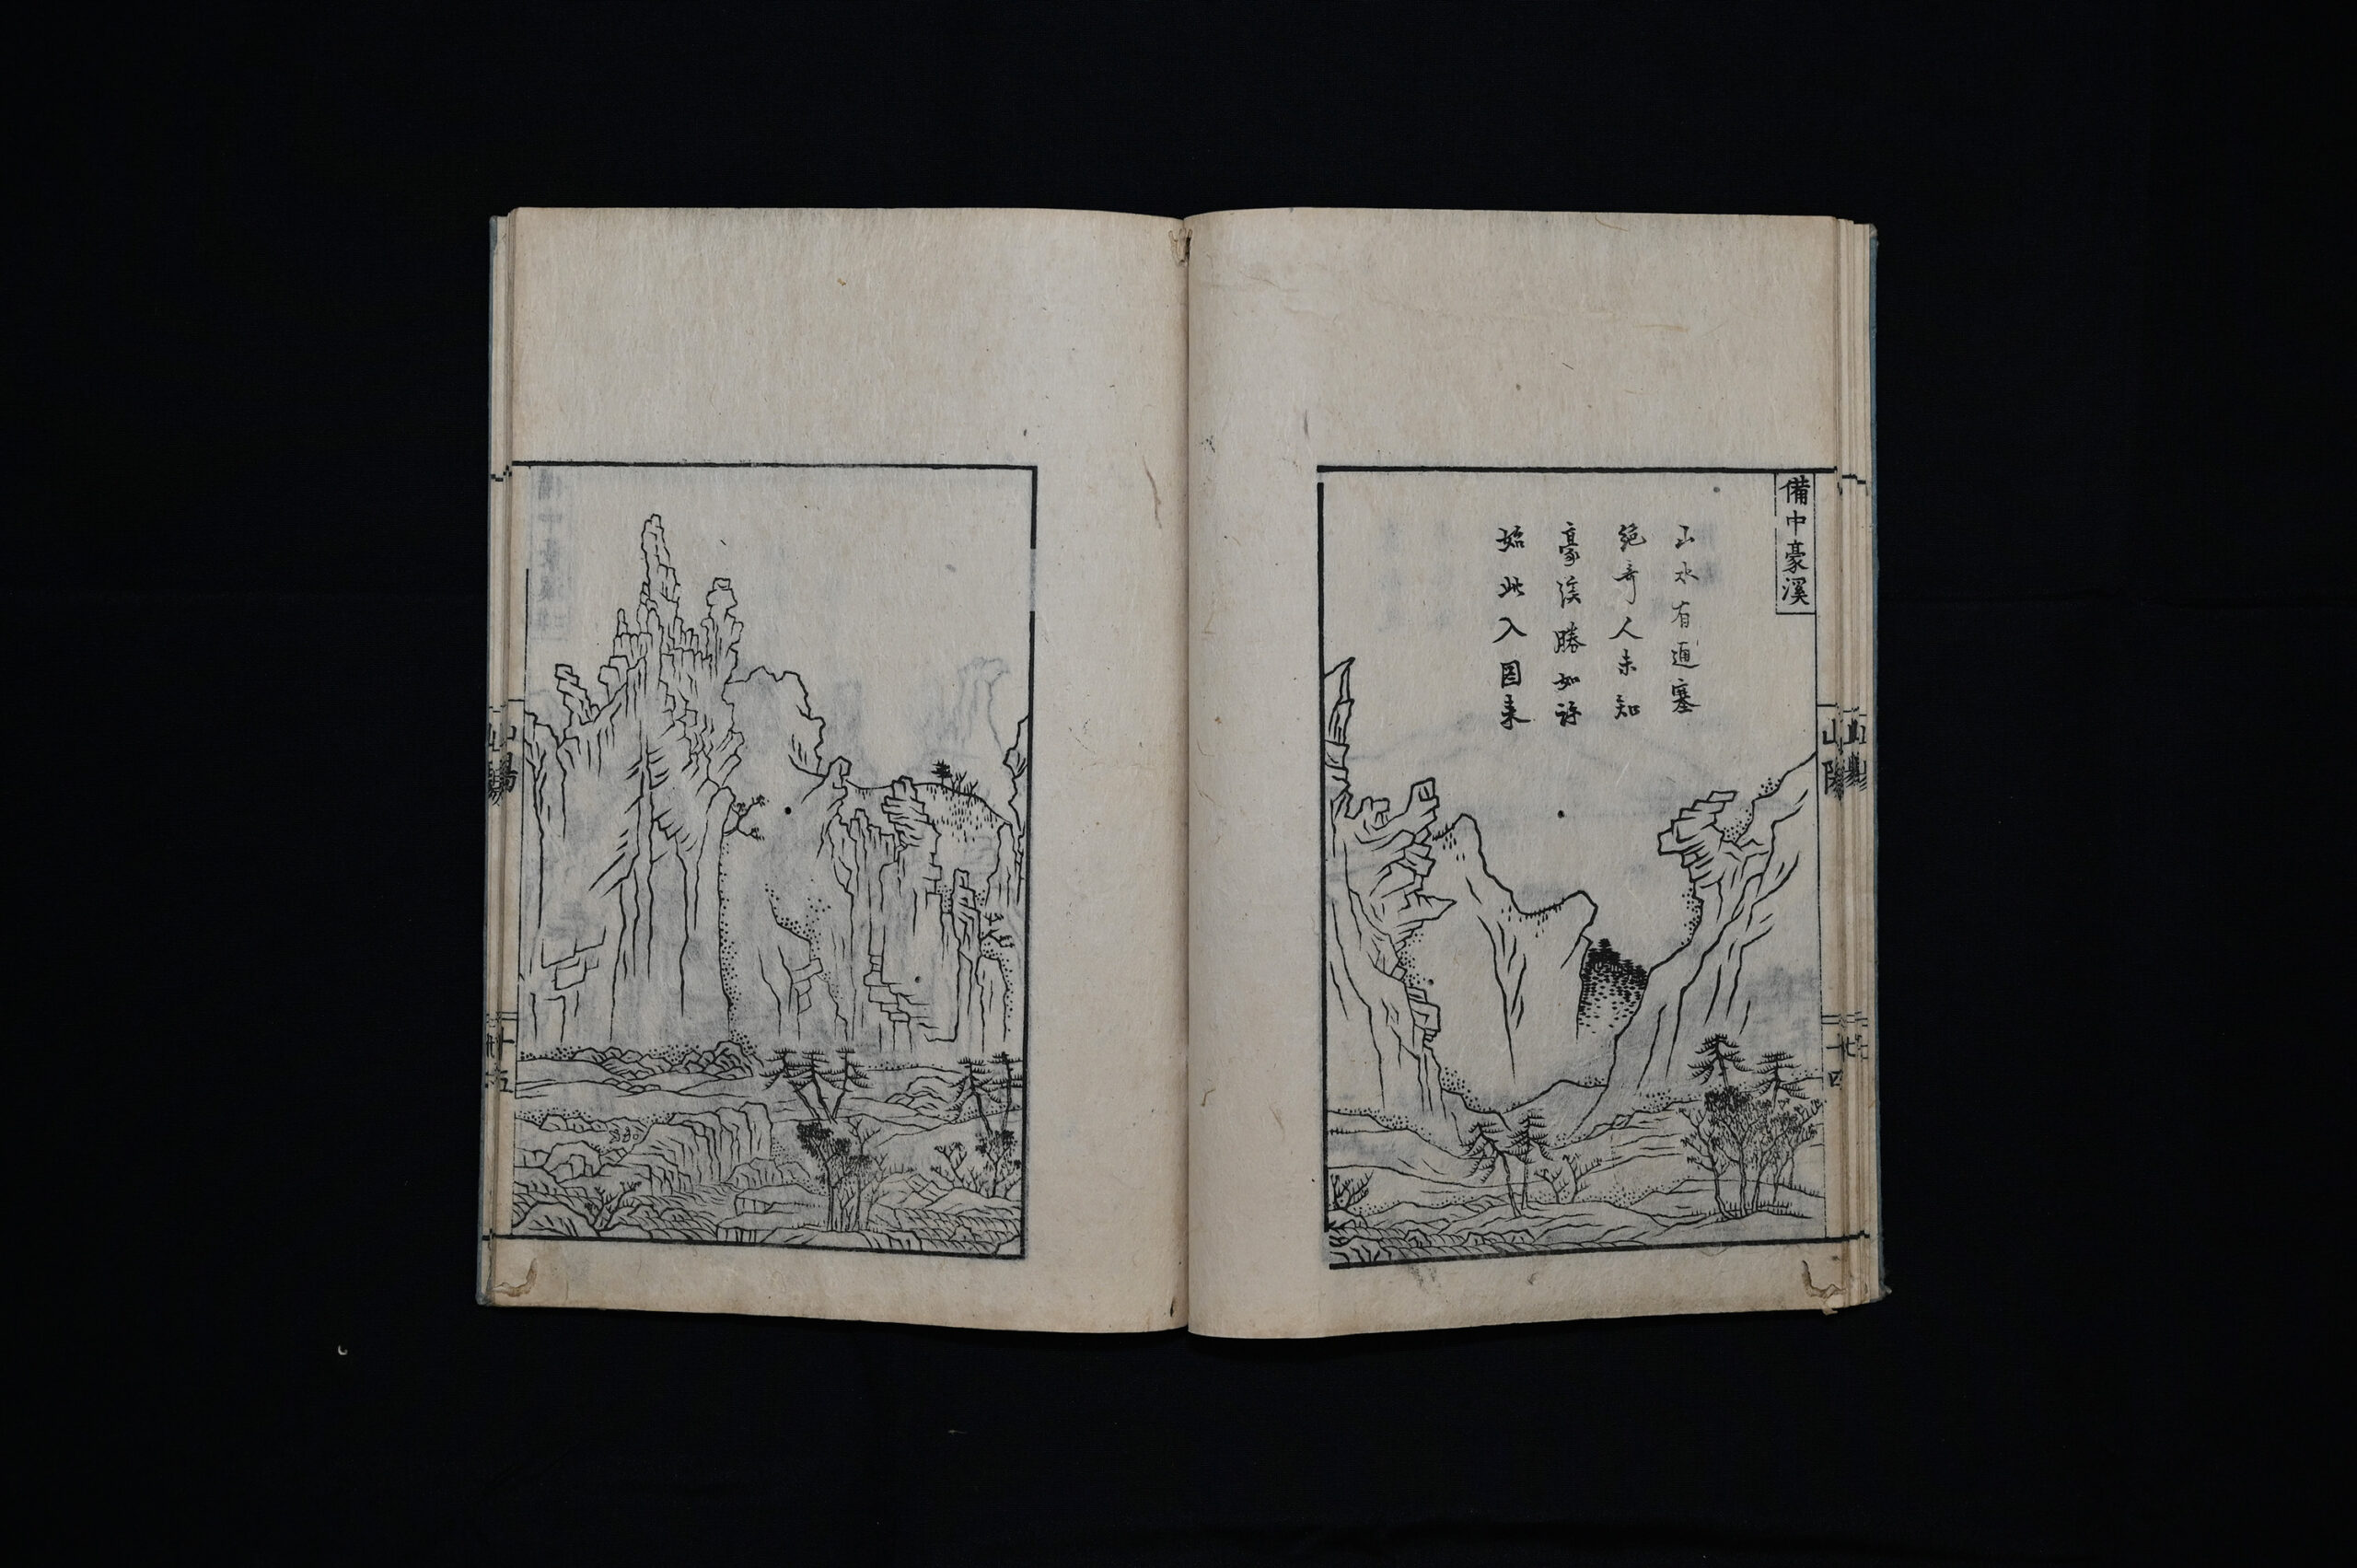 備中豪溪
山水有通塞
絶奇人未知
豪溪勝如許
始此入図来
山陽
十四
山陽
十五